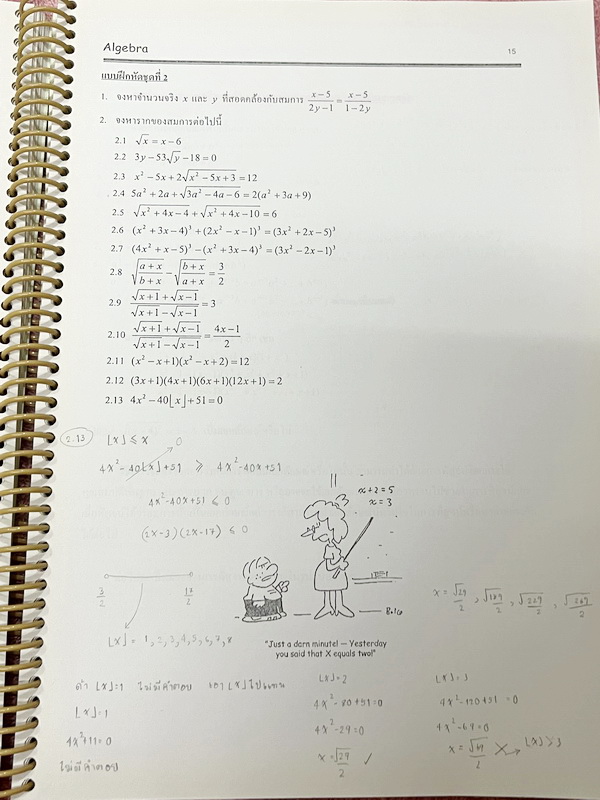 Algebra 15
แบบฝึกหัดชุดที่ 2
1. จงหาจำนวนจริง x และ y ที่สอดคล้องกับสมการ (x-5)/(2y-1) = (x-5)/(1-2y)
2. จงหารากของสมการต่อไปนี้
2.1 √x = x-6
2.2 3y-53√y-18=0
2.3 x²-5x+2√(x²-5x+3)=12
2.4 5a²+2a+√(3a²-4a-6)=2(a²+3a+9)
2.5 √(x²+4x-4)+√(x²+4x-10)=6
2.6 (x²+3x-4)³+(2x²-x-1)³=(3x²+2x-5)³
2.7 (4x²+x-5)³-(x²+3x-4)³=(3x²-2x-1)³
2.8 √((a+x)/(b+x))-√((b+x)/(a+x))=3/2
2.9 (√(x+1)+√(x-1))/(√(x+1)-√(x-1))=3
2.10 (√(x+1)+√(x-1))/(√(x+1)-√(x-1))=(4x-1)/2
2.11 (x²-x+1)(x²-x+2)=12
2.12 (3x+1)(4x+1)(6x+1)(12x+1)=2
2.13 4x²-40⌊x⌋+51=0
2.13 ⌊x⌋ ≤ x
0
4x²-40⌊x⌋+51 ≥ 4x²-40x+51
4x²-40x+51 ≤ 0
(2x-3)(2x-17) ≤ 0
3/2 17/2
⌊x⌋ = 1,2,3,4,5,6,7,8
x+2=5
x=3
"Just a darn minute! — Yesterday
you said that X equals two!"
x = √29/2, √189/2, √229/2, √269/2
ถ้า ⌊x⌋=1 ไม่มีคำตอบ เอา ⌊x⌋ ไปแทน
⌊x⌋=1
4x²+11=0
ไม่มีคำตอบ
⌊x⌋=2
4x²-80+51=0
4x²-29=0
x=√29/2 ✓
⌊x⌋=3
4x²-120+51=0
4x²-69=0
x=√69/2 ✗ → ⌊x⌋>3